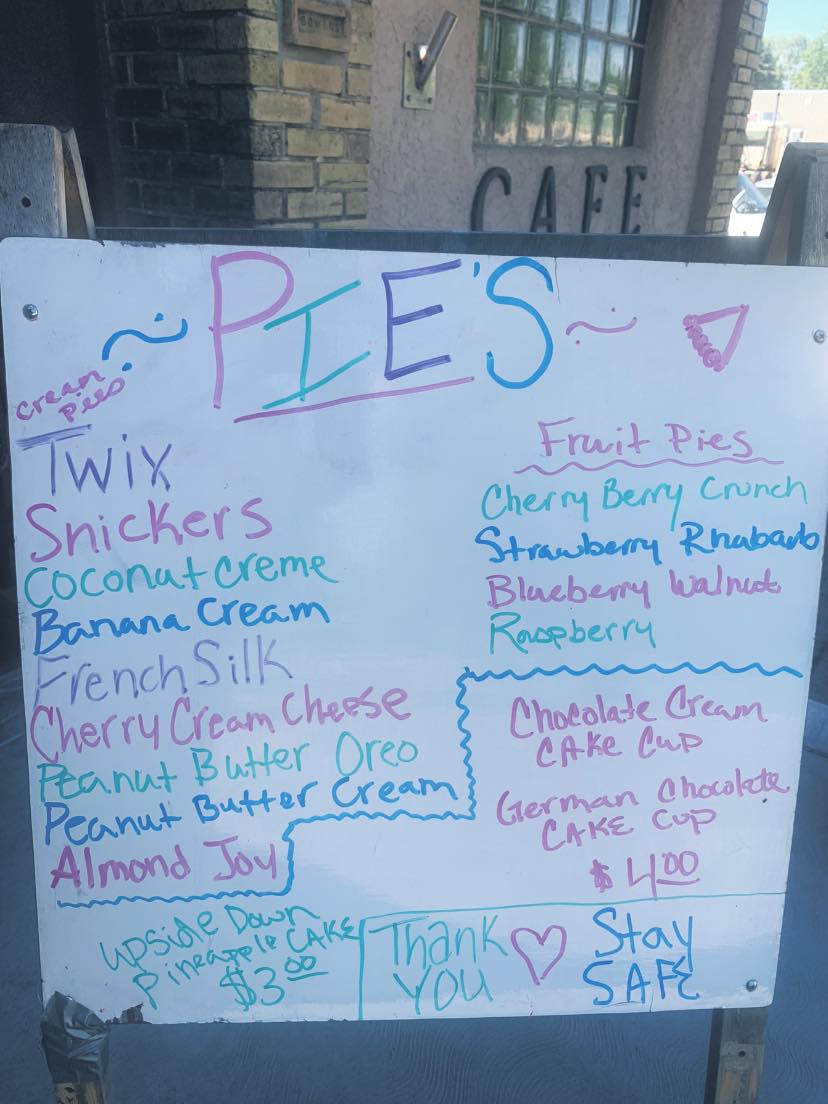 CAFE
PIE'S
cream
pies
Twix
Snickers
Coconut Creme
Banana Cream
French Silk
Cherry Cream Cheese
Peanut Butter Oreo
Peanut Butter Cream
Almond Joy
Fruit Pies
Cherry Berry Crunch
Strawberry Rhubarb
Blueberry Walnut
Raspberry
Chocolate Cream
CAKE CUP
German Chocolate
CAKE CUP
$4.00
Upside Down
Pineapple CAKE
$3.00
Thank
YOU
Stay
SAFE